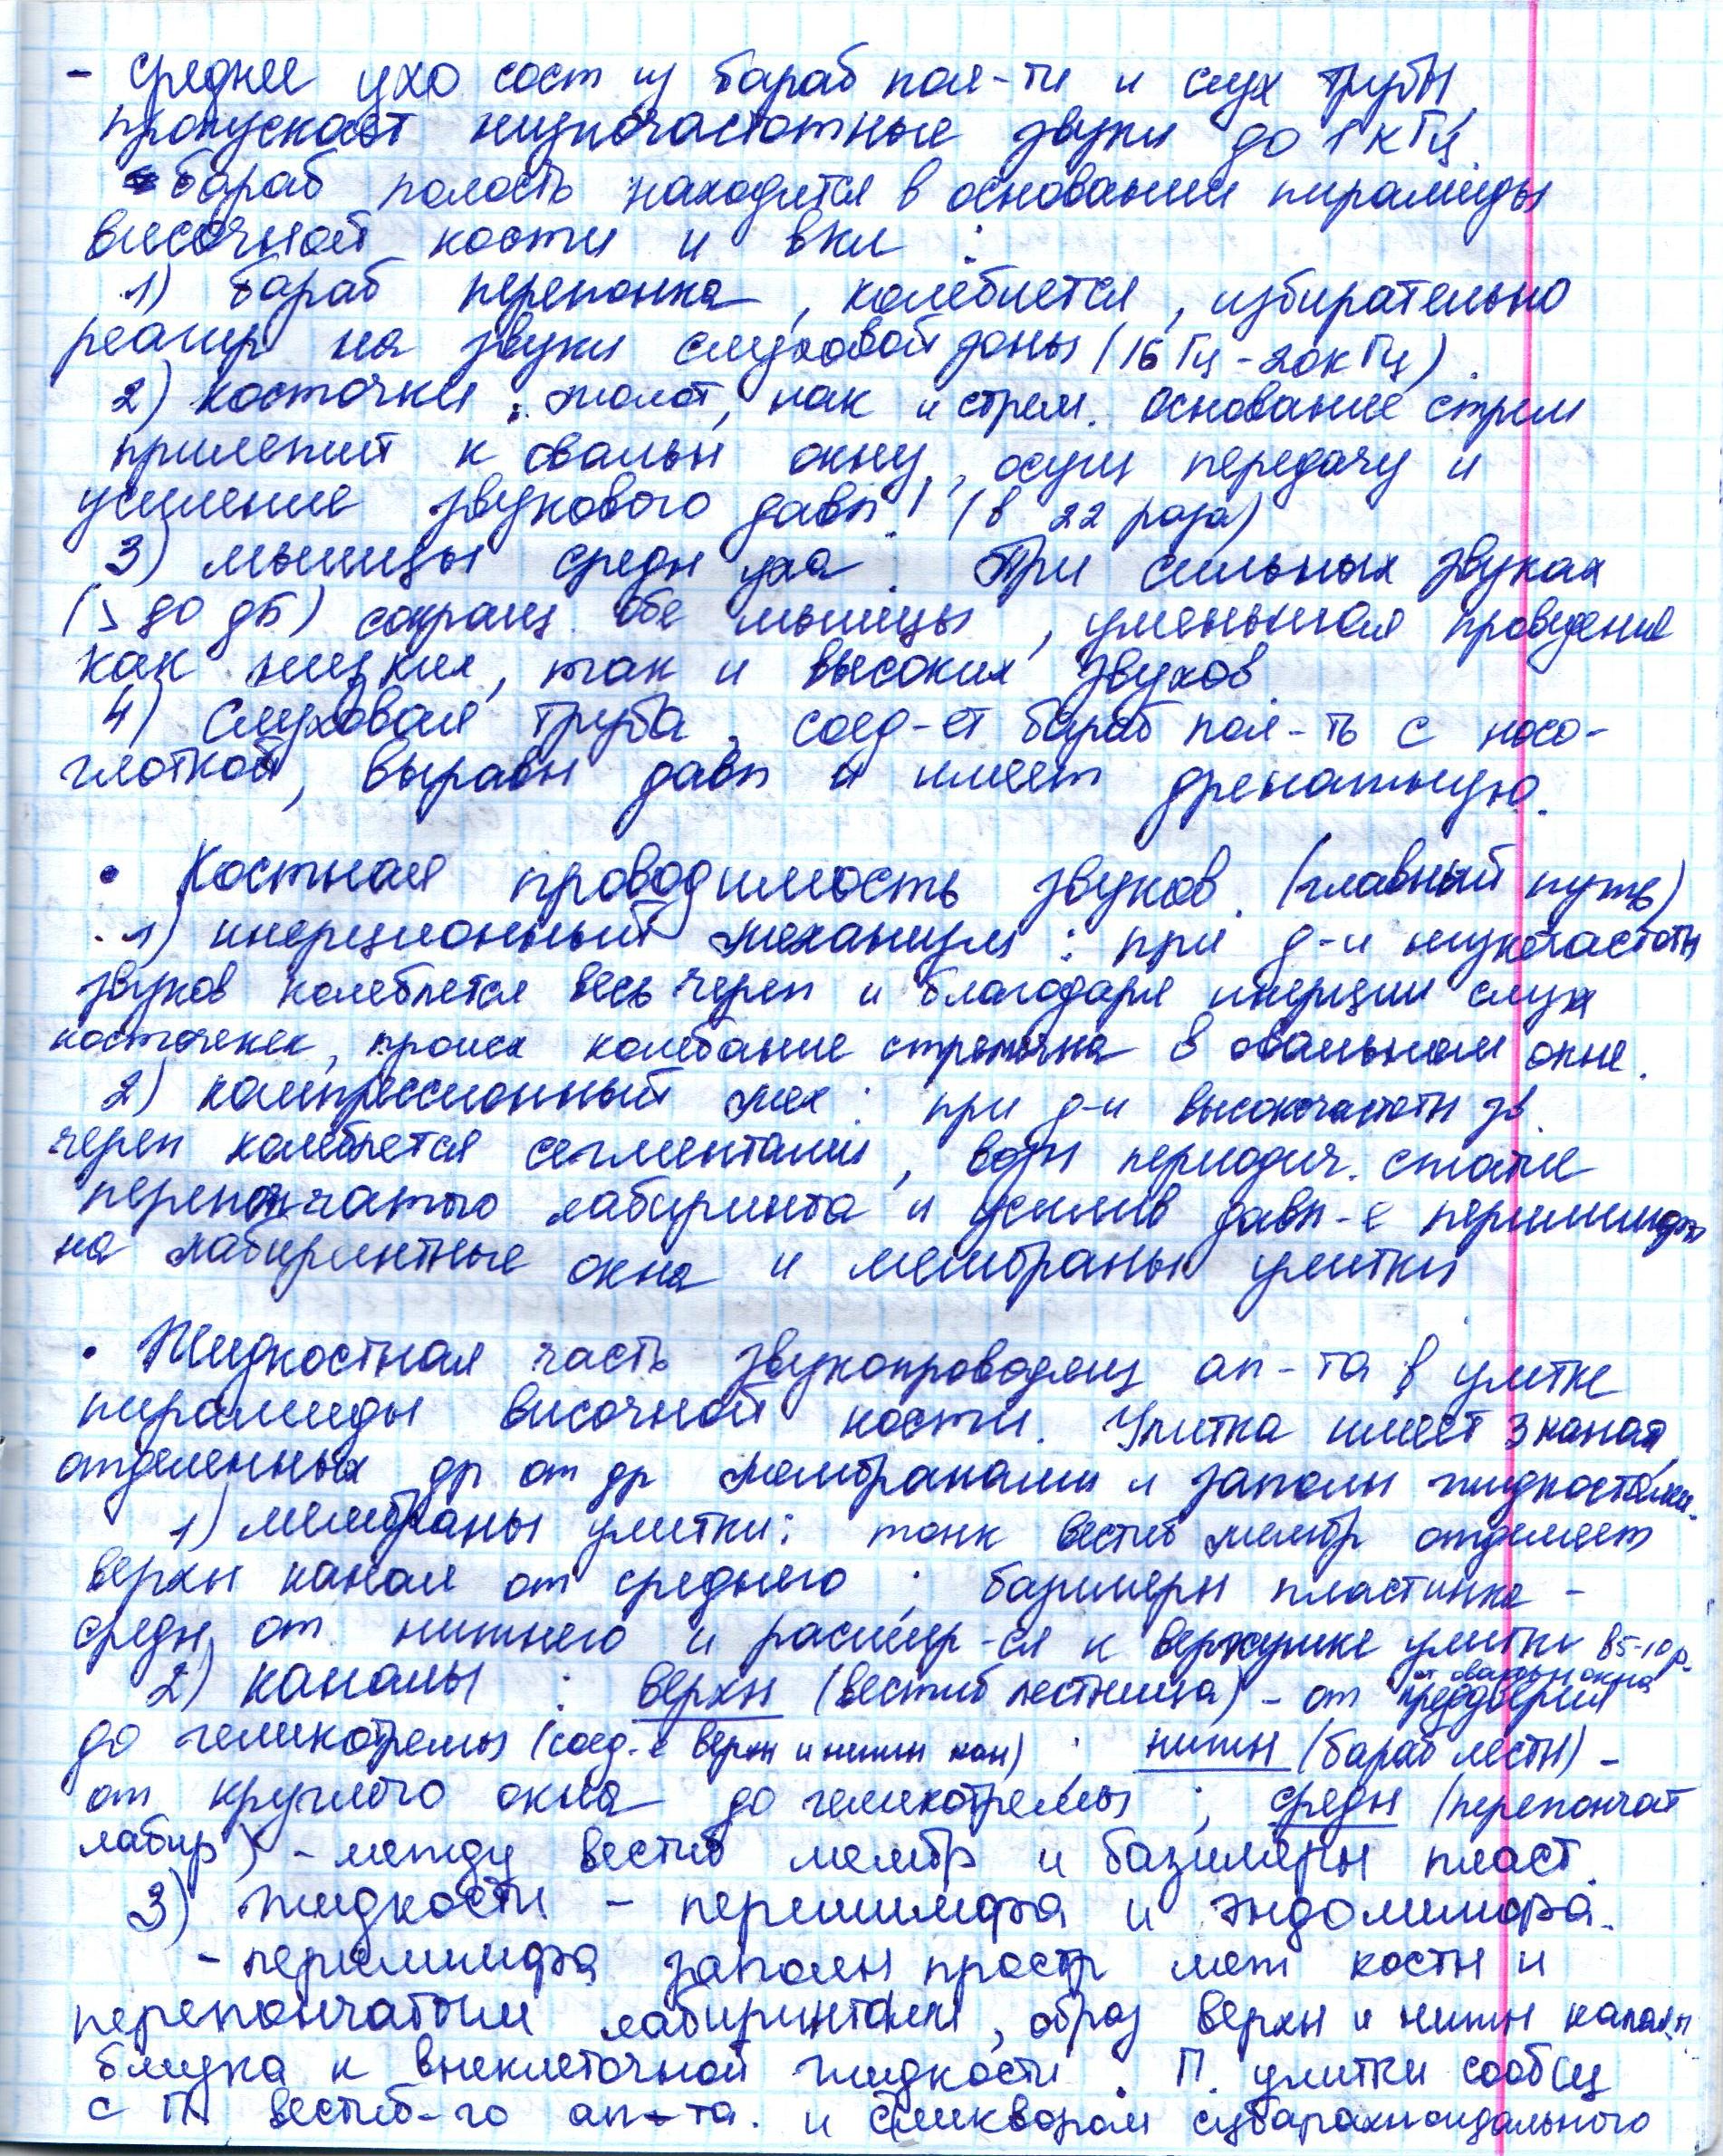 - среднее ухо сост из бараб пол-ти и слух трубы,
пропускает низкочастотные звуки до 1 кГц.
бараб полость находится в основании пирамиды
височной кости и вкл :
1) бараб перепонка, колеблется, избирательно
реагир на звуки слуховой зоны (16 Гц - 20 кГц).
2) косточки : молот, нак и стрем. Основание стрем
прилепит к овальн окну, осущ передачу и
усиление звукового давл! (в 22 раза)
3) мышцы средн уха. При сильных звуках
(> 80 дБ) сокращ. обе мышцы, уменьшая проведение
как низких, так и высоких звуков.
4) Слуховая труба. соед-ет бараб пол-ть с носо-
глоткой, выравн давл и имеет дренажную.
• Костная проводимость звуков. (главный путь)
1) инерционный механизм : при д-и низкочастотн
звуков колеблется весь череп и благодаря инерции слух
косточек, происх колебание стремечка в овальном окне.
2) компрессионный мех : при д-и высокочастотн зв.
череп колеблется сегментами, возн периодич. сжатие
перепончатого лабиринта и усилив давл-е перилимфы
на лабиринтные окна и мембраны улитки
• Жидкостная часть звукопроводящ ап-та в улитке
пирамиды височной кости. Улитка имеет 3 канала,
отделенных др от др мембранами и заполн жидкостями.
1) мембраны улитки: тонк вестиб мембр отделяет
верхн канал от среднего ; базилярн пластинка -
средн от нижнего и расшир-ся к верхушке улитки в 5-10 р.
2) каналы : верхн (вестиб лестница) - от овальн окна преддверия
до геликотремы (соед-е верхн и нижн кан) ; нижн (бараб лестн) -
от круглого окна до геликотремы ; средн (перепончат
лабир) - между вестиб мембр и базилярн пласт.
3) жидкости - перилимфа и эндолимфа.
- перилимфа заполн простр меж костн и
перепончатым лабиринтами, образ верхн и нижн канал,
близка к внеклеточной жидкости. П. улитки сообщ
с П вестиб-го ап-та. и с ликвором субарахноидального